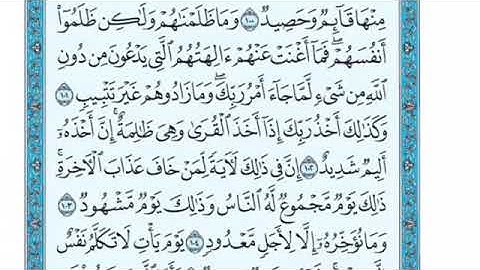 مِنْهَا قَآئِمٌ وَحَصِيدٌ ١٠٠ وَمَا ظَلَمْنَٰهُمْ وَلَٰكِن ظَلَمُوٓا۟
أَنفُسَهُمْ ۖ فَمَآ أَغْنَتْ عَنْهُمْ ءَالِهَتُهُمُ ٱلَّتِى يَدْعُونَ مِن دُونِ
ٱللَّهِ مِن شَىْءٍ لَّمَّا جَآءَ أَمْرُ رَبِّكَ ۖ وَمَا زَادُوهُمْ غَيْرَ تَتْبِيبٍ ١٠١
وَكَذَٰلِكَ أَخْذُ رَبِّكَ إِذَآ أَخَذَ ٱلْقُرَىٰ وَهِىَ ظَٰلِمَةٌ ۚ إِنَّ أَخْذَهُۥٓ
أَلِيمٌ شَدِيدٌ ١٠٢ إِنَّ فِى ذَٰلِكَ لَءَايَةً لِّمَنْ خَافَ عَذَابَ ٱلْءَاخِرَةِ ۚ
ذَٰلِكَ يَوْمٌ مَّجْمُوعٌ لَّهُ ٱلنَّاسُ وَذَٰلِكَ يَوْمٌ مَّشْهُودٌ ١٠٣
وَمَا نُؤَخِّرُهُۥٓ إِلَّا لِأَجَلٍ مَّعْدُودٍ ١٠٤ يَوْمَ يَأْتِ لَا تَكَلَّمُ نَفْسٌ